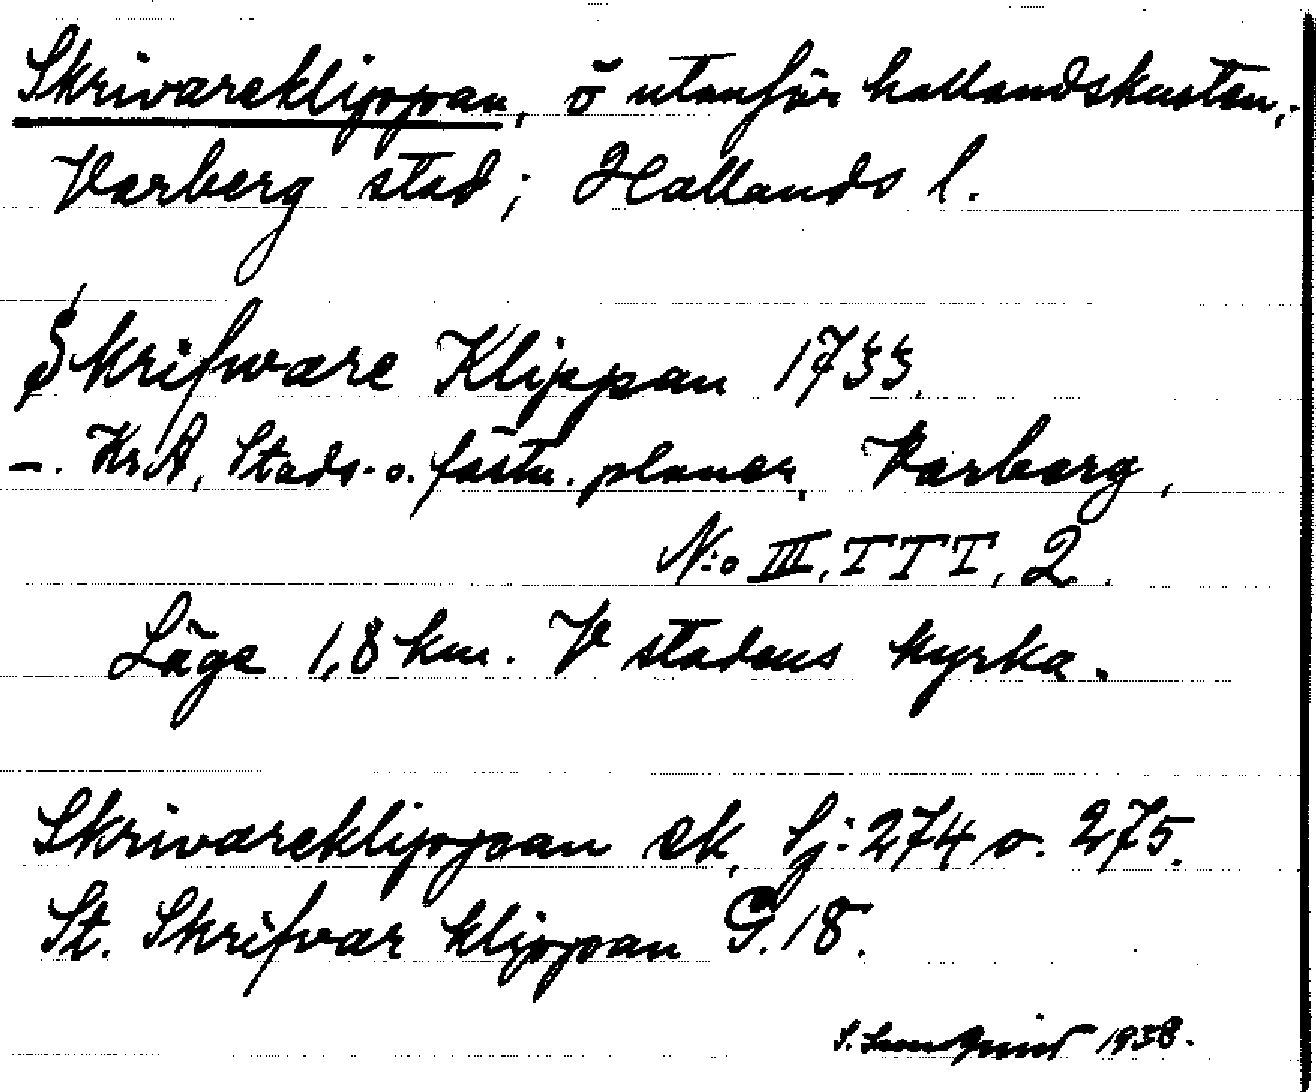 Skrivareklippan, ö utanför hallandskusten,
Varberg stad; Hallands l.
Skrifware Klippan 1733.
-. Kr.A, Stads- o. fästn. planer, Varberg,
N:o III, TTT, 2.
Läge 1,8 km. V stadens kyrka.
Skrivareklippan ek. Sj: 274 o. 275.
St. Skrifvar klippan G. 18.
1938.